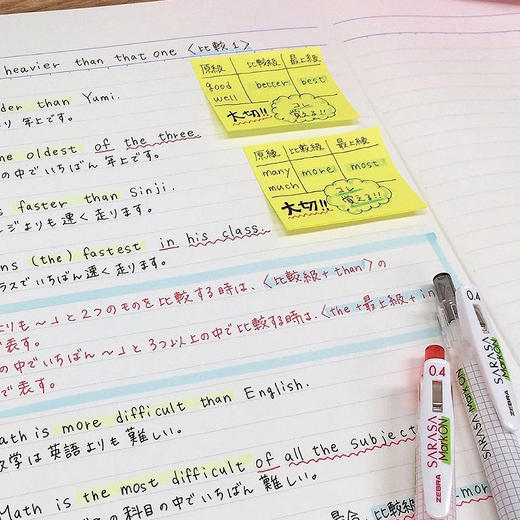 heavier than that one 〈比較1〉
than Yumi.
年上です。
oldest of the three.
の中でいちばん 年上です。
faster than Sinji.
よりも速く走ります。
(the) fastest in his class.
でいちばん速く走ります。
原級 比較級 最上級
good better best
well
大切!! コレ
覚える!!
原級 比較級 最上級
many more most
much
大切!! コレ
覚える!!
よりも〜」と2つのものを比較する時は、〈比較級+than〉の
で表す。
の中でいちばん〜」と3つ以上の中で比較する時は、〈the+最上級+in
で表す。
Math is more difficult than English.
数学は英語よりも難しい。
Math is the most difficult of all the subject
の科目の中でいちばん 難しい。
比較級
mor
0.4
SARASA
MarkON
ZEBRA
0.4
SARASA
MarkON
ZEBRA